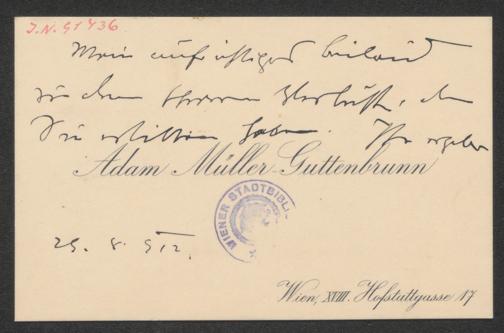 J.N. 91436
Mein aufrichtiges Beileid
zu dem schweren Verluste, den
Sie erlitten haben. Ihr ergeben
Adam Müller-Guttenbrunn
WIENER STADTBIBL
29. 8. 912.
Wien, XVIII. Hofstattgasse 17